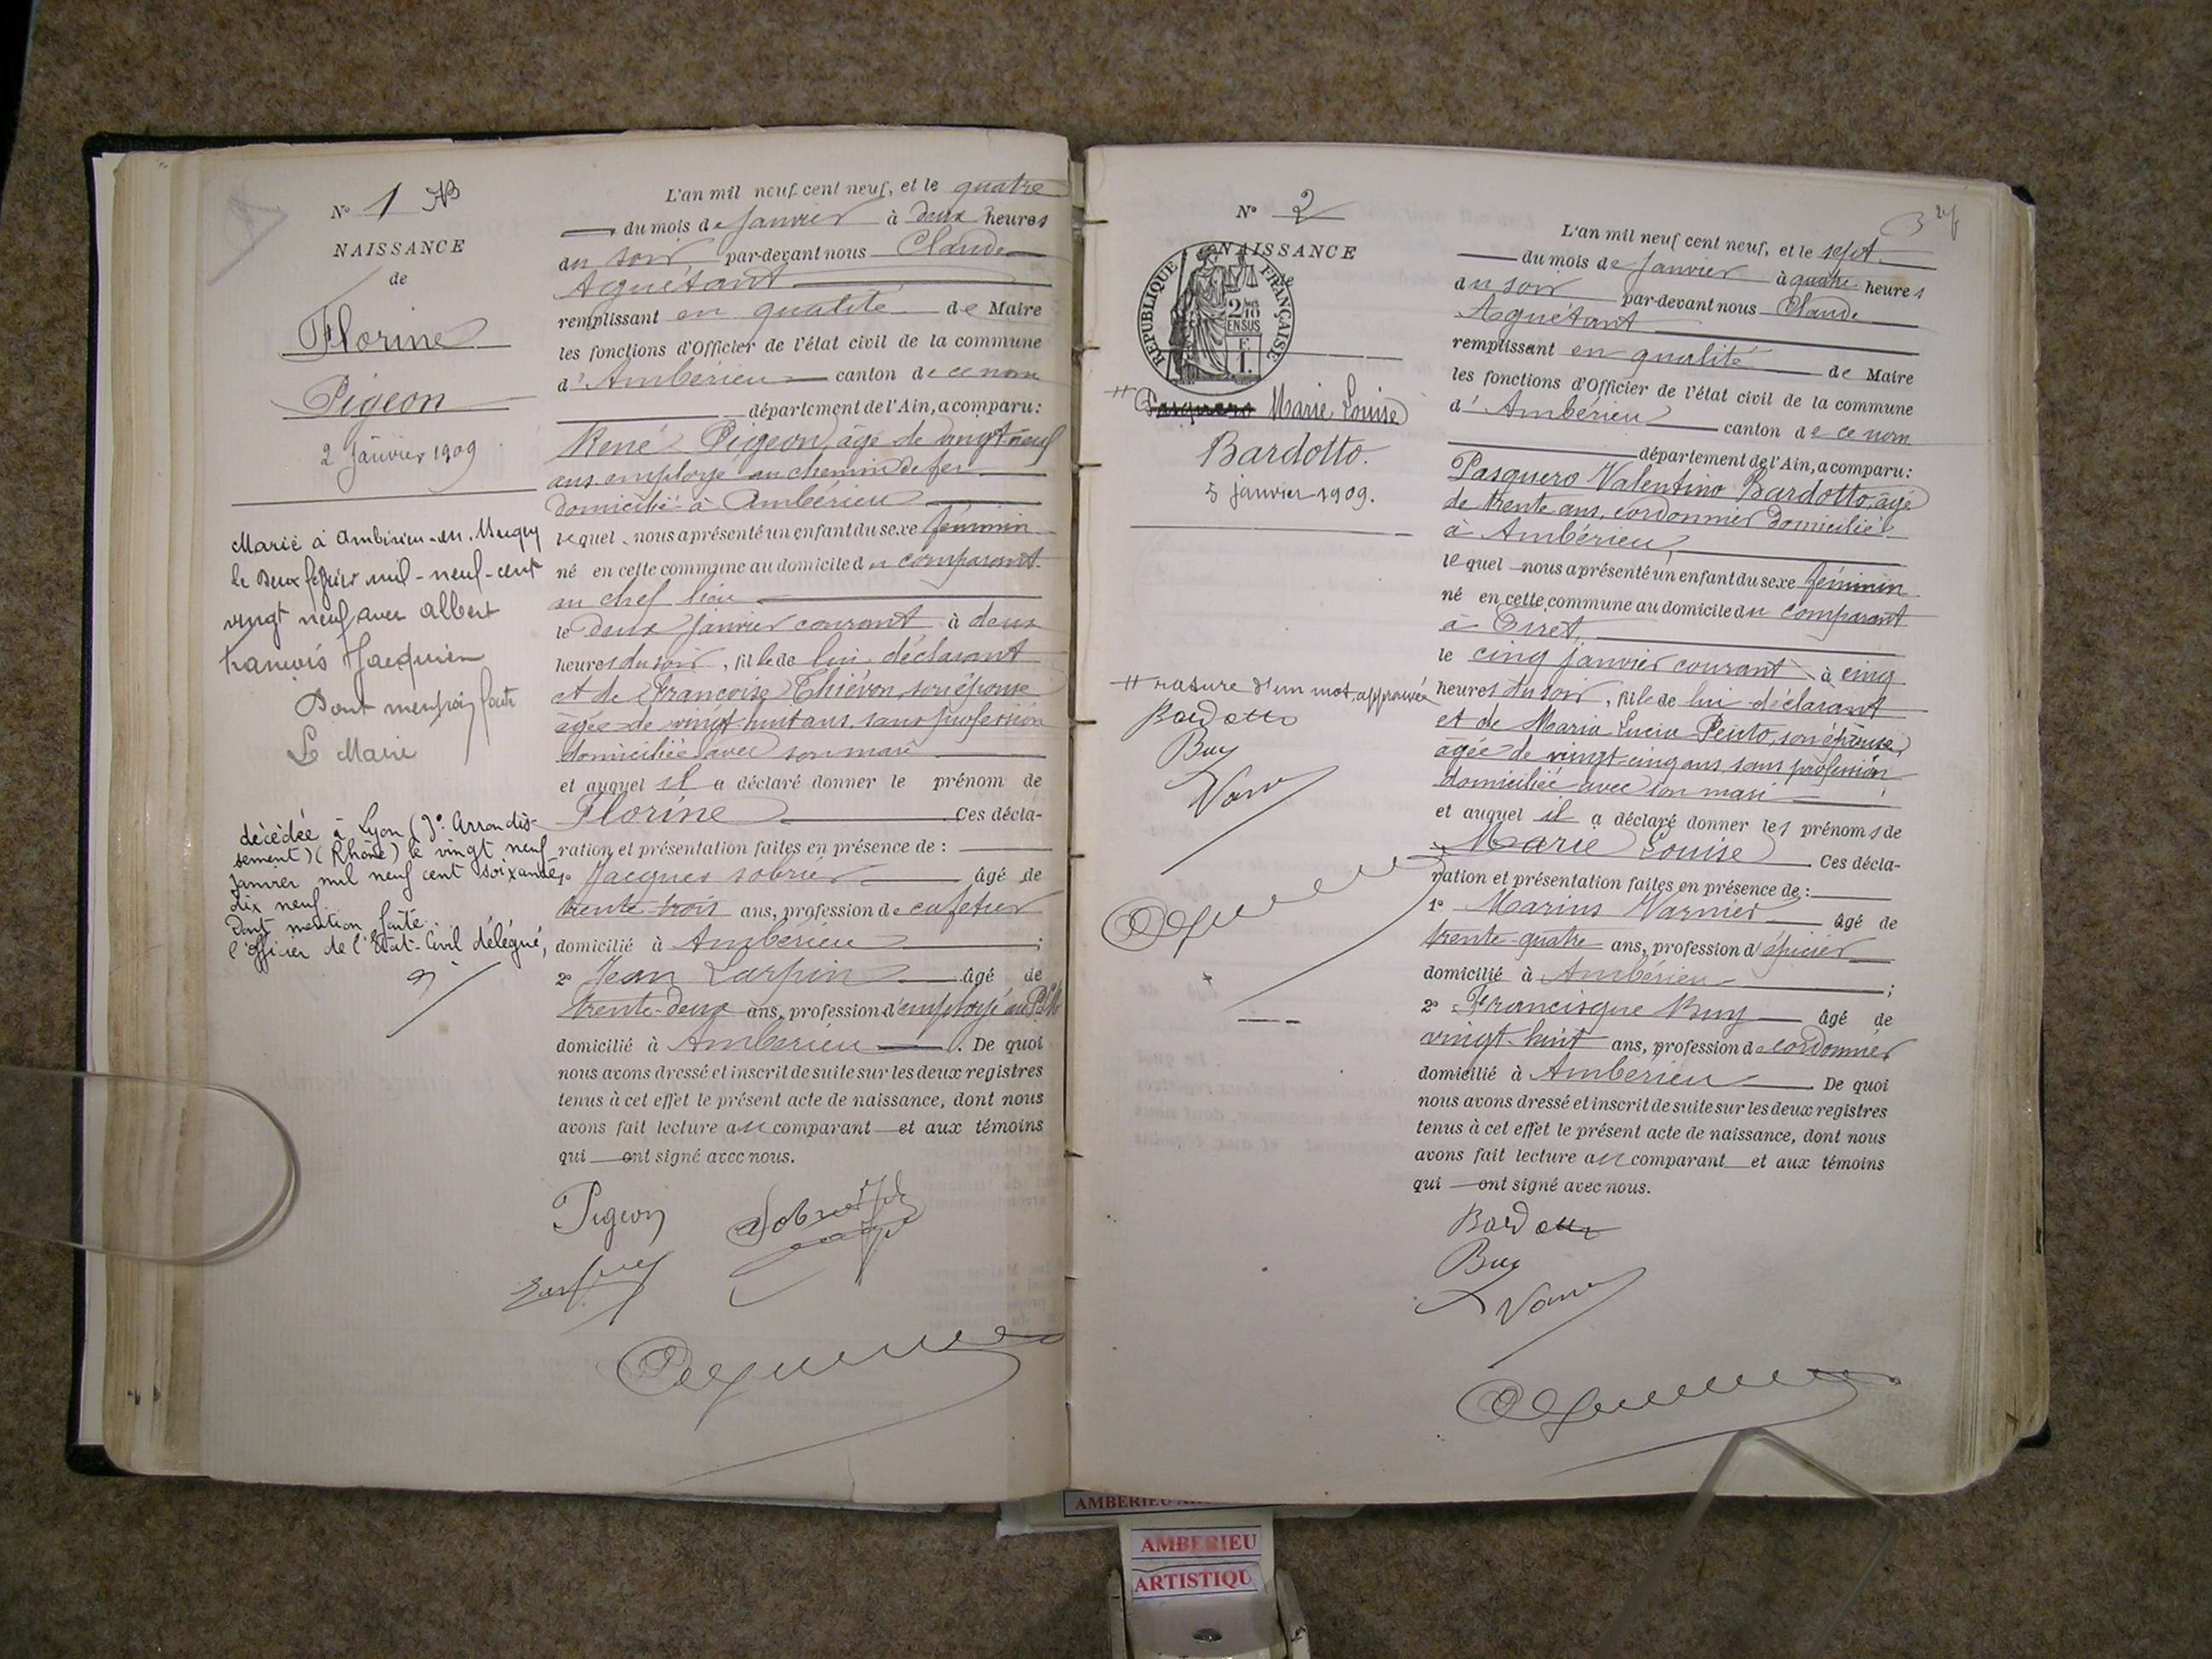 N° 1 AB
NAISSANCE
de
Florine
Pigeon
2 Janvier 1909
Marié à Ambérieu-en-Bugey
le Deux février mil-neuf-cent
vingt neuf avec Albert
françois Jacquier
Dont mention faite
Le Maire
décédée à Lyon (3e Arrondis-
sement) (Rhône) le vingt neuf
janvier mil neuf cent soixante
dix neuf.
Dont mention faite.
l'Officier de l'Etat-Civil délégué,
L'an mil neuf cent neuf, et le quatre
du mois de Janvier à deux heures
du soir par-devant nous Claude
Aguétant
remplissant en qualité de Maire
les fonctions d'Officier de l'état civil de la commune
d'Ambérieu canton de ce nom
département de l'Ain, a comparu :
René Pigeon, âgé de vingt neuf
ans employé au chemin de fer
domicilié à Ambérieu
lequel nous a présenté un enfant du sexe féminin
né en cette commune au domicile du comparant
au chef lieu
le deux janvier courant à deux
heures du soir, fille de lui déclarant
et de Françoise Thiévon, son épouse
âgée de vingt-huit ans, sans profession
domiciliée avec son mari
et auquel il a déclaré donner le prénom de
Florine Ces décla-
ration et présentation faites en présence de :
1° Jacques Sobrier âgé de
trente-trois ans, profession de cafetier
domicilié à Ambérieu ;
2° Jean Larpin âgé de
trente-deux ans, profession d'employé au PLM
domicilié à Ambérieu . De quoi
nous avons dressé et inscrit de suite sur les deux registres
tenus à cet effet le présent acte de naissance, dont nous
avons fait lecture au comparant et aux témoins
qui ont signé avec nous.
Pigeon
N° 2
NAISSANCE
de
REPUBLIQUE FRANÇAISE
2/10
EN SUS
F
1.
# Pasquero Marie Louise
Bardotto.
5 janvier 1909.
# rature d'un mot approuvée
Bardotto
Buy
3
L'an mil neuf cent neuf, et le sept
du mois de Janvier à quatre heures
du soir par-devant nous Claude
Aguétant
remplissant en qualité de Maire
les fonctions d'Officier de l'état civil de la commune
d'Ambérieu canton de ce nom
département de l'Ain, a comparu :
Pasquero Valentino Bardotto, âgé
de trente ans, cordonnier domicilié
à Ambérieu,
lequel nous a présenté un enfant du sexe féminin
né en cette commune au domicile du comparant
à Tiret,
le cinq janvier courant à cinq
heures du soir, fille de lui déclarant
et de Maria Lucia Peuto, son épouse
âgée de vingt-cinq ans, sans profession
domiciliée avec son mari
et auquel il a déclaré donner les prénoms de
Marie Louise Ces décla-
ration et présentation faites en présence de :
1° Marius Varnier âgé de
trente-quatre ans, profession d'épicier
domicilié à Ambérieu ;
2° Francisque Buy âgé de
vingt-huit ans, profession de cordonnier
domicilié à Ambérieu De quoi
nous avons dressé et inscrit de suite sur les deux registres
tenus à cet effet le présent acte de naissance, dont nous
avons fait lecture au comparant et aux témoins
qui ont signé avec nous.
Bardotto
Buy
AMBERIEU
AMBERIEU
ARTISTIQU